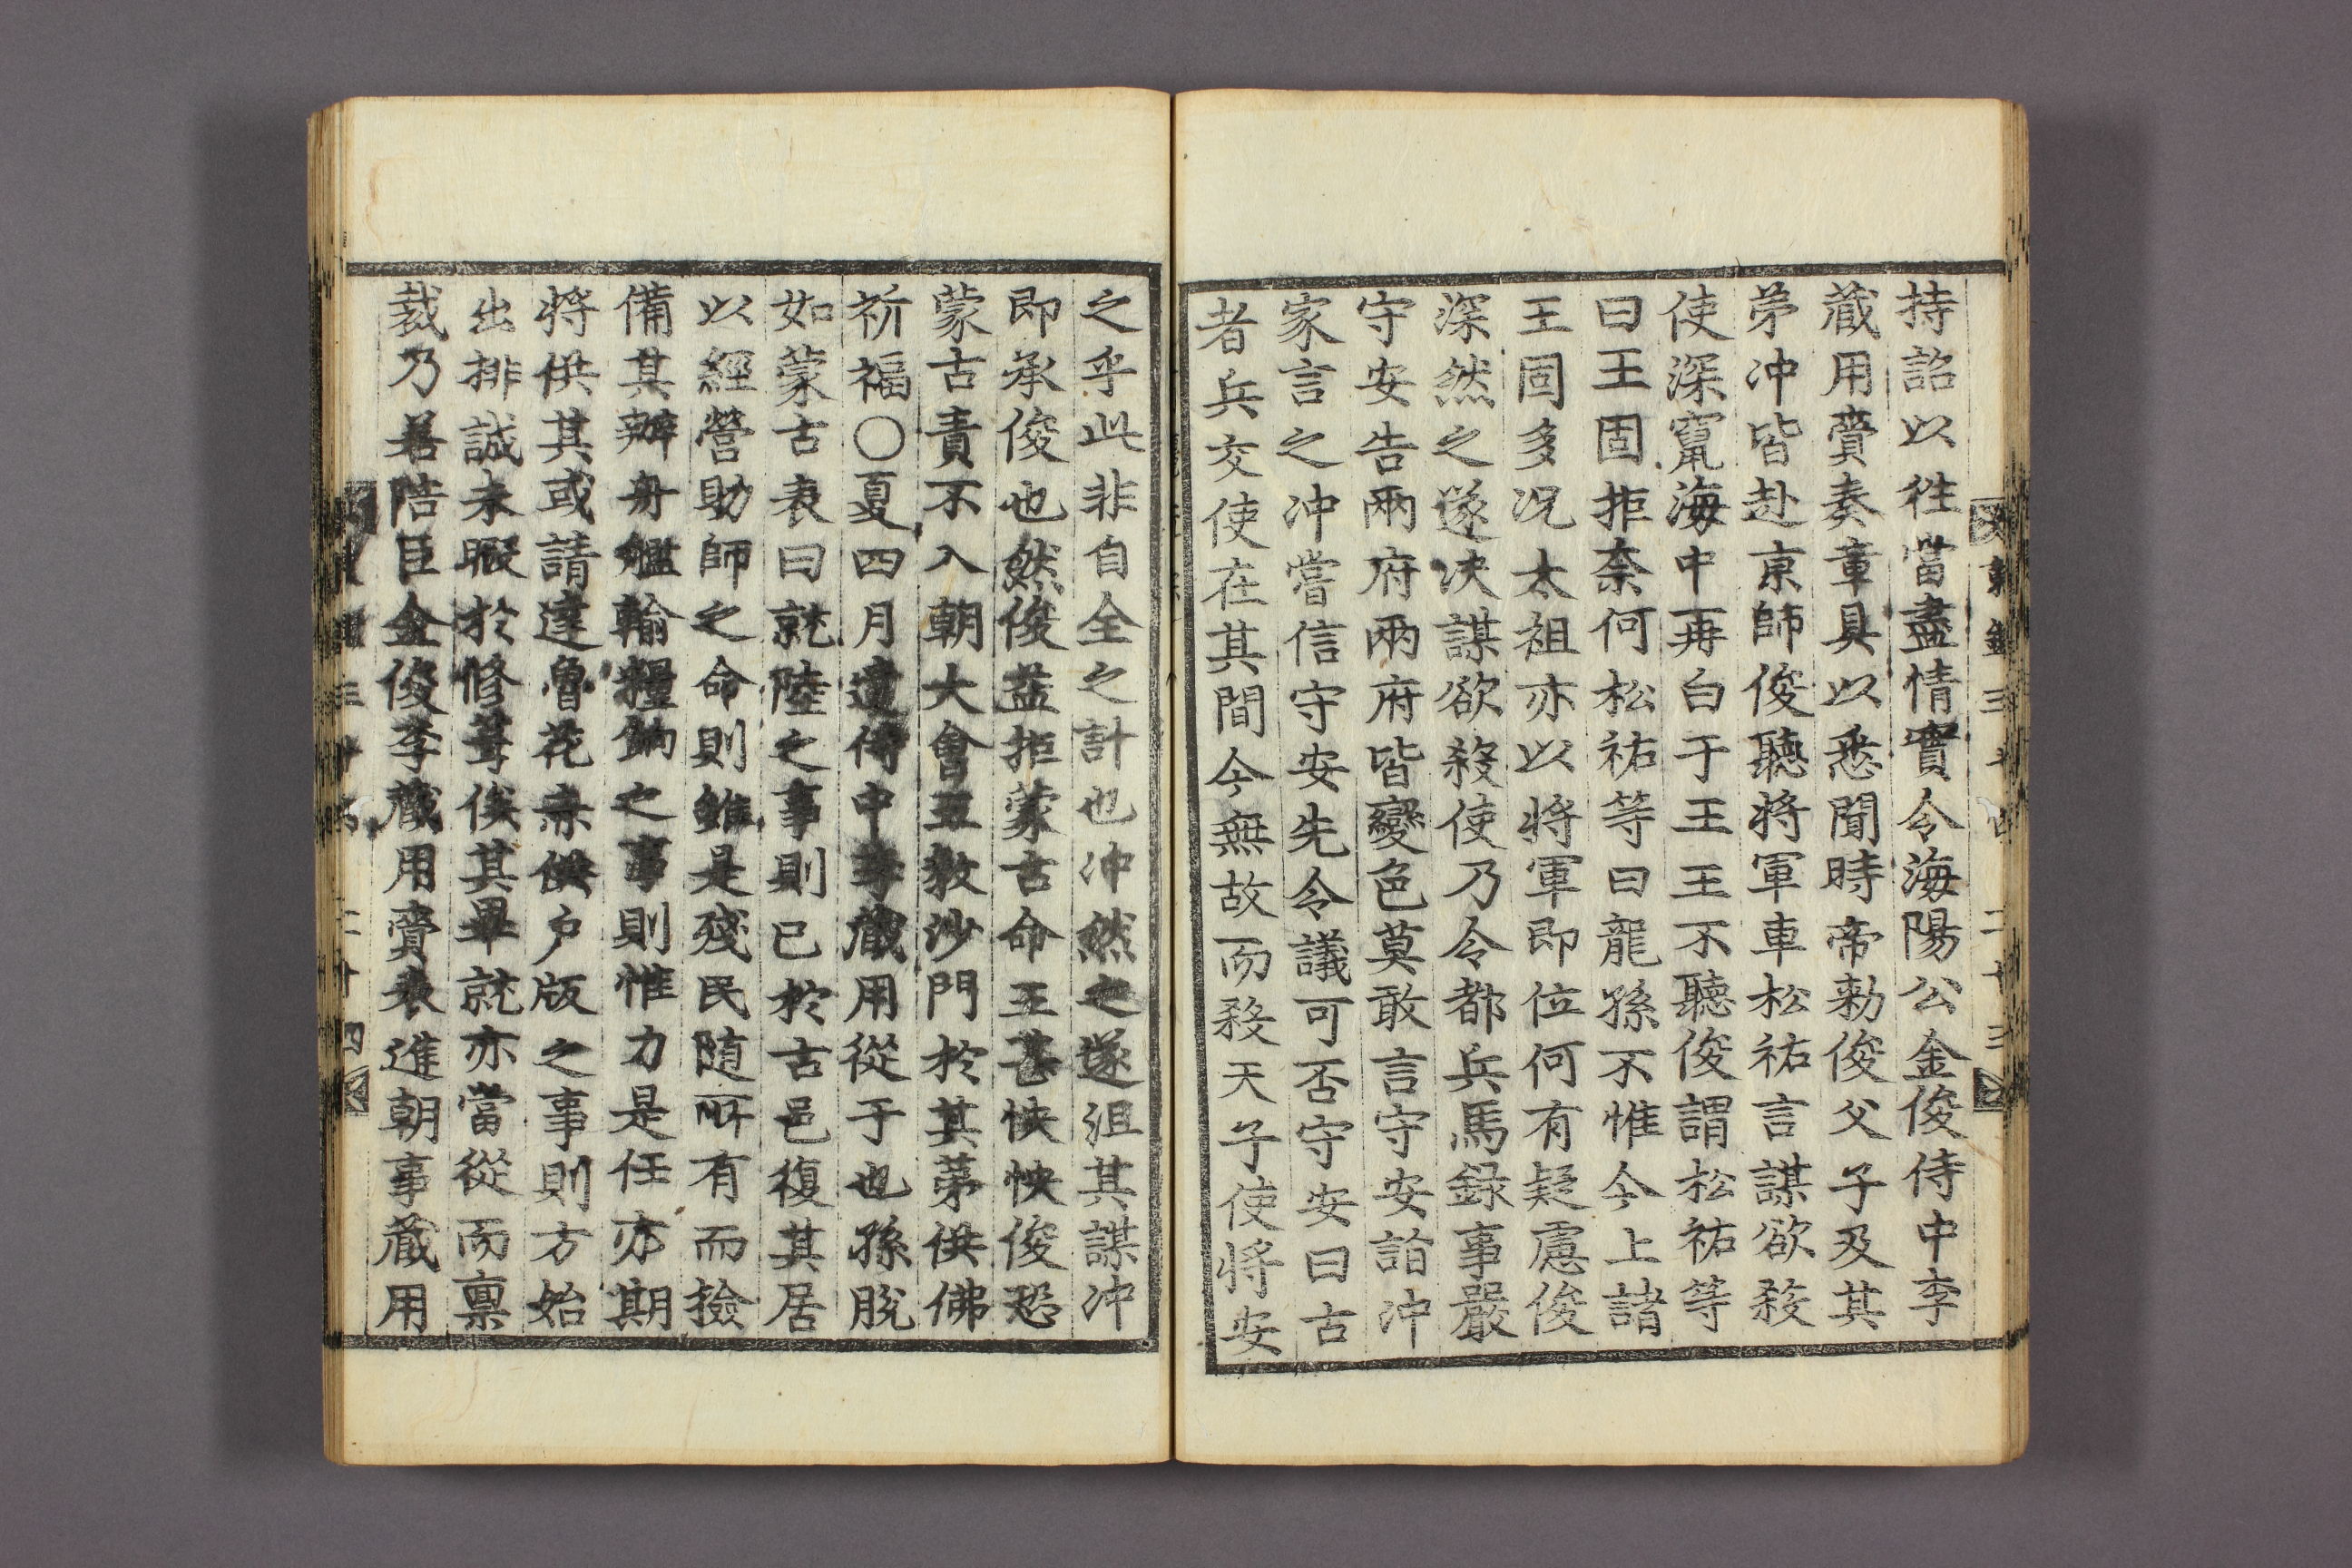 持詔以徃當盡情實令海陽公金俊侍中李
蔵用賫奏章具以悉聞時帝勑俊父子及其
弟冲皆赴京師俊聽將軍車松祐言謀欲殺
使深竄海中再白于王王不聽俊謂松祐等
曰王固拒奈何松祐等曰龍孫不惟今上諸
王固多况太祖亦以將軍即位何有疑慮俊
深然之遂决謀欲殺使乃令都兵馬録事嚴
守安告兩府兩府皆變色莫敢言守安詣冲
家言之冲嘗信守安先令議可否守安曰古
者兵交使在其間今無故而殺天子使將安
之乎此非自全之計也冲然之遂沮其謀冲
即承俊也然俊益拒蒙古命王甚怏怏俊恐
蒙古責不入朝大會五教沙門於其第供佛
祈福〇夏四月遣侍中李蔵用從于也孫脫
如蒙古表曰就陸之事則已於古邑復其居
以經營助師之命則雖是殘民随所有而撿
備其辦舟艦輸糧餉之事則惟力是任亦期
將供其或請達魯花赤供户版之事則方始
出排誠未暇於修葺俟其畢就亦當從而禀
裁乃若陪臣金俊李蔵用賫表進朝事蔵用